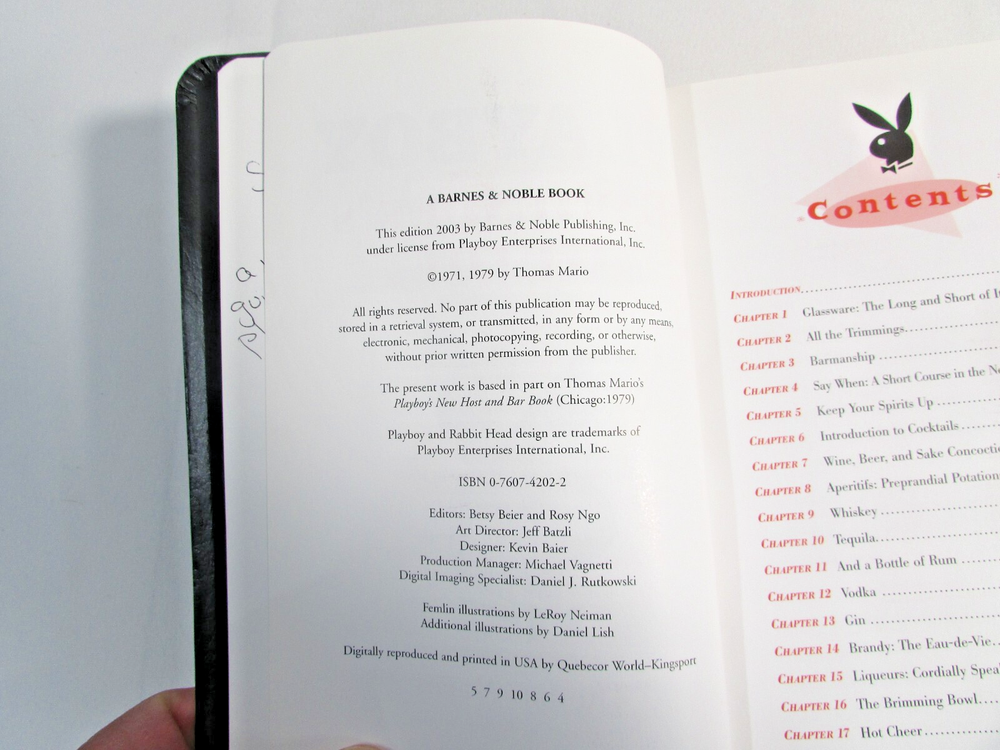 A BARNES & NOBLE BOOK
This edition 2003 by Barnes & Noble Publishing, Inc.
under license from Playboy Enterprises International, Inc.
©1971, 1979 by Thomas Mario
All rights reserved. No part of this publication may be reproduced,
stored in a retrieval system, or transmitted, in any form or by any means,
electronic, mechanical, photocopying, recording, or otherwise,
without prior written permission from the publisher.
The present work is based in part on Thomas Mario's
Playboy's New Host and Bar Book (Chicago:1979)
Playboy and Rabbit Head design are trademarks of
Playboy Enterprises International, Inc.
ISBN 0-7607-4202-2
Editors: Betsy Beier and Rosy Ngo
Art Director: Jeff Batzli
Designer: Kevin Baier
Production Manager: Michael Vagnetti
Digital Imaging Specialist: Daniel J. Rutkowski
Femlin illustrations by LeRoy Neiman
Additional illustrations by Daniel Lish
Digitally reproduced and printed in USA by Quebecor World–Kingsport
5 7 9 10 8 6 4
Contents
INTRODUCTION
CHAPTER 1 Glassware: The Long and Short of
CHAPTER 2 All the Trimmings
CHAPTER 3 Barmanship
CHAPTER 4 Say When: A Short Course in the
CHAPTER 5 Keep Your Spirits Up
CHAPTER 6 Introduction to Cocktails
CHAPTER 7 Wine, Beer, and Sake
CHAPTER 8 Aperitifs: Preprandial
CHAPTER 9 Whiskey
CHAPTER 10 Tequila
CHAPTER 11 And a Bottle of Rum
CHAPTER 12 Vodka
CHAPTER 13 Gin
CHAPTER 14 Brandy: The Eau-de-Vie
CHAPTER 15 Liqueurs: Cordially
CHAPTER 16 The Brimming Bowl
CHAPTER 17 Hot Cheer